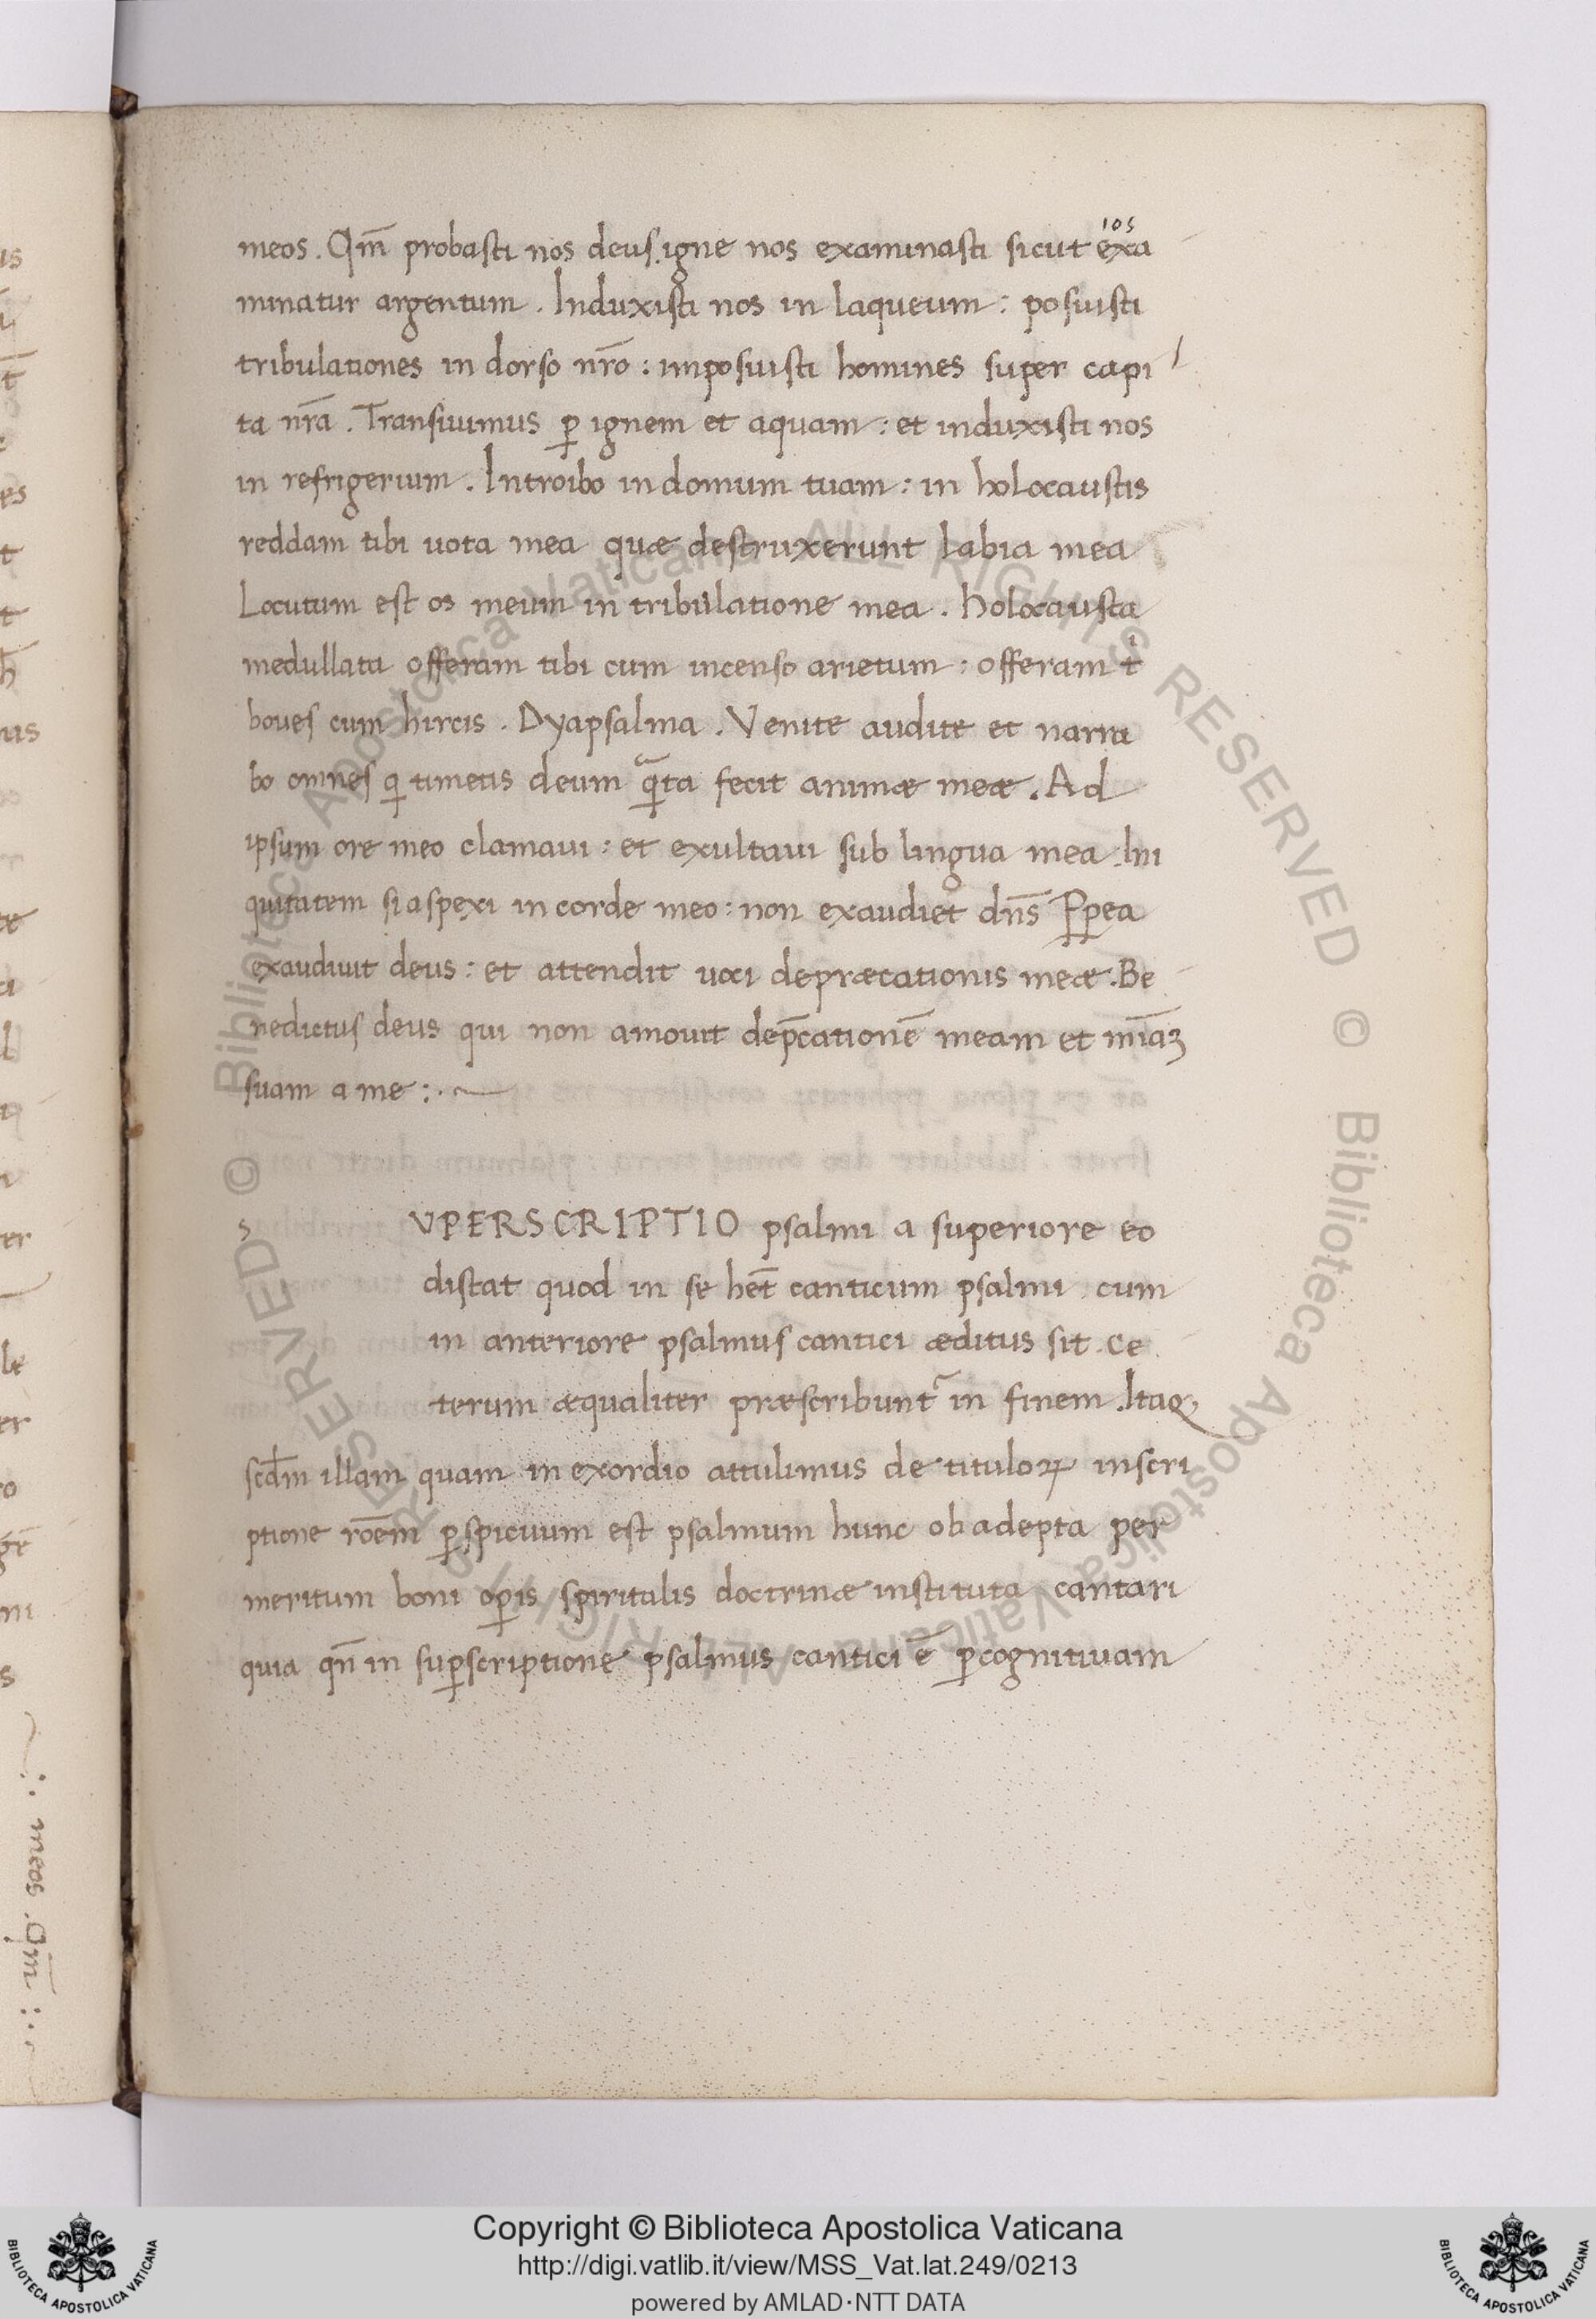 105
meos. Qm̄ probasti nos deus. igne nos examinasti sicut exa
minatur argentum. Induxisti nos in laqueum: posuisti
tribulationes in dorso nr̄o: imposuisti homines super capi
ta nr̄a. Transiuimus ꝑ ignem et aquam: et induxisti nos
in refrigerium. Introibo in domum tuam: in holocaustis
reddam tibi uota mea quæ destruxerunt labia mea
Locutum est os meum in tribulatione mea. holocausta
medullata offeram tibi cum incenso arietum: offeram tⁱ
boues cum hircis. Dyapsalma. Venite audite et narra
bo omnes q timetis deum q̃ta fecit animæ meæ. Ad
ipsum ore meo clamaui: et exultaui sub lingua mea. Ini
quitatem si aspexi in corde meo: non exaudiet dn̄s Ꝑꝑea
exaudiuit deus: et attendit uoci depræcationis meæ. Be
nedictus deus qui non amouit dep̄cationē meam et mīaꝫ
suam a me:
S VPERSCRIPTIO psalmi a superiore eo
distat quod in se hēt canticum psalmi. cum
in anteriore psalmus cantici æditus sit. Ce
terum æqualiter præscribunt᷑ in finem. Itaqꝫ
scd̄m illam quam in exordio attulimus de tituloꝝ inscri
ptione rōem ꝑspicuum est psalmum hunc ob adepta per
meritum boni oꝑis spiritalis doctrinæ instituta cantari
quia qn̄ in suꝑscriptione psalmus cantici ē ꝑ cognitiuam
meos. Qm̄
© Biblioteca Apostolica Vaticana ALL RIGHTS RESERVED © Biblioteca Apostolica Vaticana ALL RIGHTS RESERVED
Copyright © Biblioteca Apostolica Vaticana
http://digi.vatlib.it/view/MSS_Vat.lat.249/0213
powered by AMLAD·NTT DATA
BIBLIOTECA APOSTOLICA VATICANA
BIBLIOTECA APOSTOLICA VATICANA